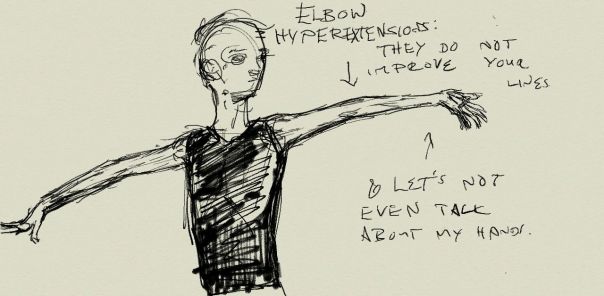 ELBOW
HYPEREXTENSIONS:
THEY DO NOT
IMPROVE YOUR
LINES
& LET'S NOT
EVEN TALK
ABOUT MY HANDS.